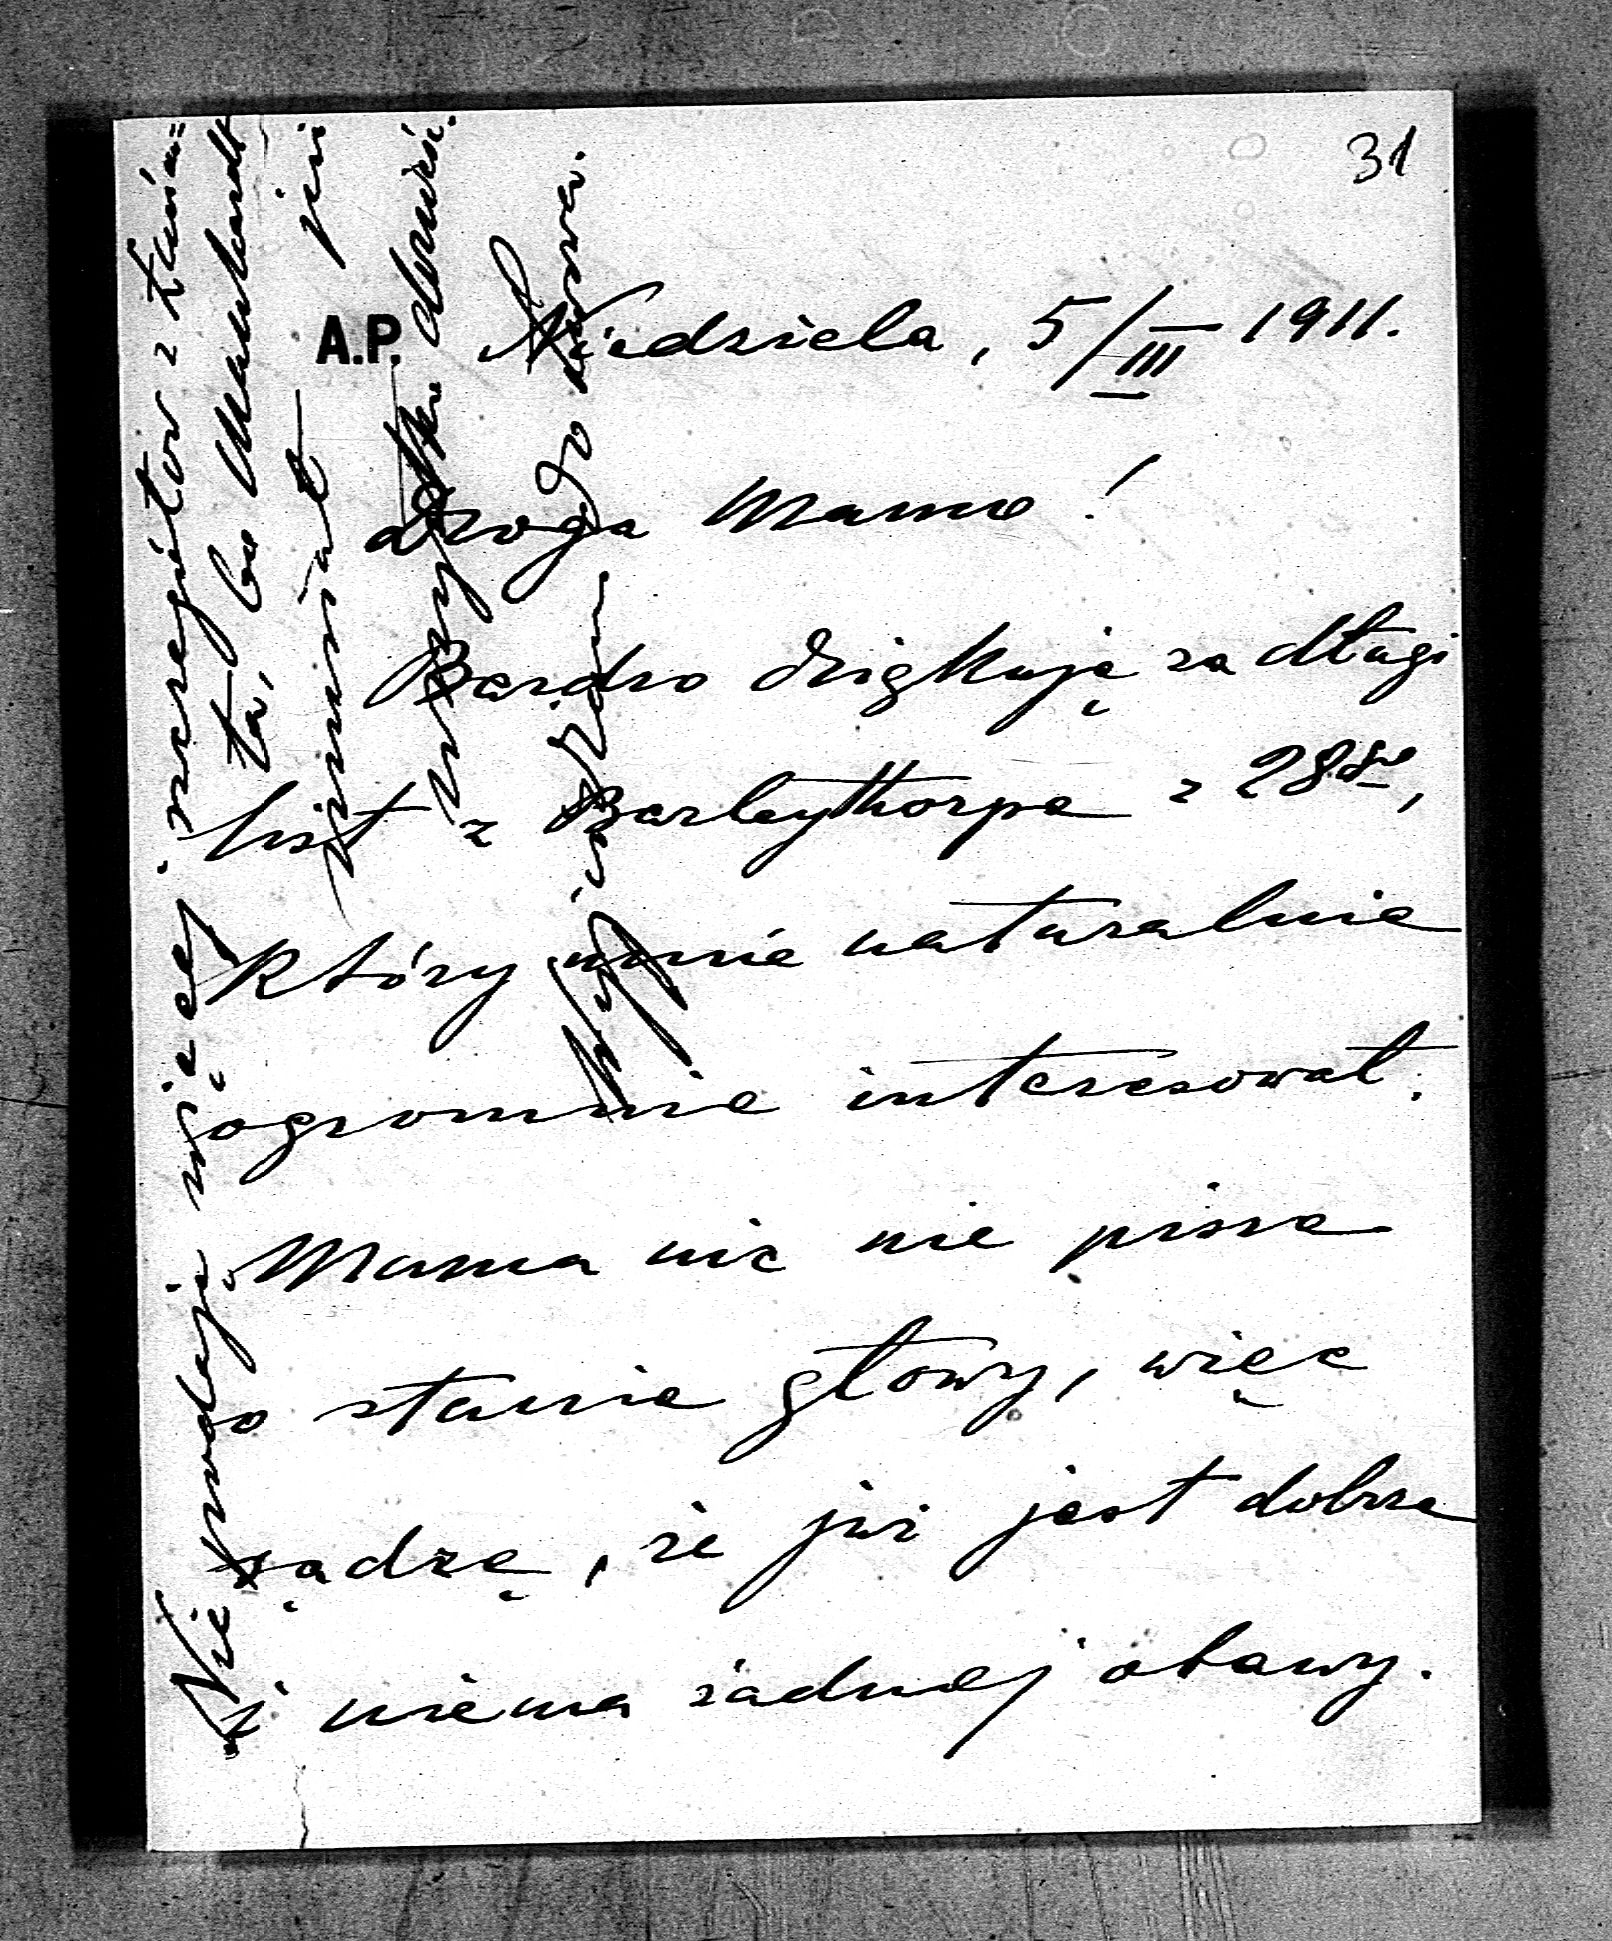 31
A.P.
Niedziela, 5/III 1911.
Droga Mamo!
Bardzo dziękuję za długi
list z Barleythorpe z 28go,
który mnie naturalnie
ogromnie interesował.
Mama nic nie pisze
o stanie głowy, więc
sądzę, że już jest dobrze
i niema żadnej obawy.
Nie podaję więcej szczegółów z Łańcu=
ta, bo
musiał już
wszystko donieść.
Wyjeżdżam do